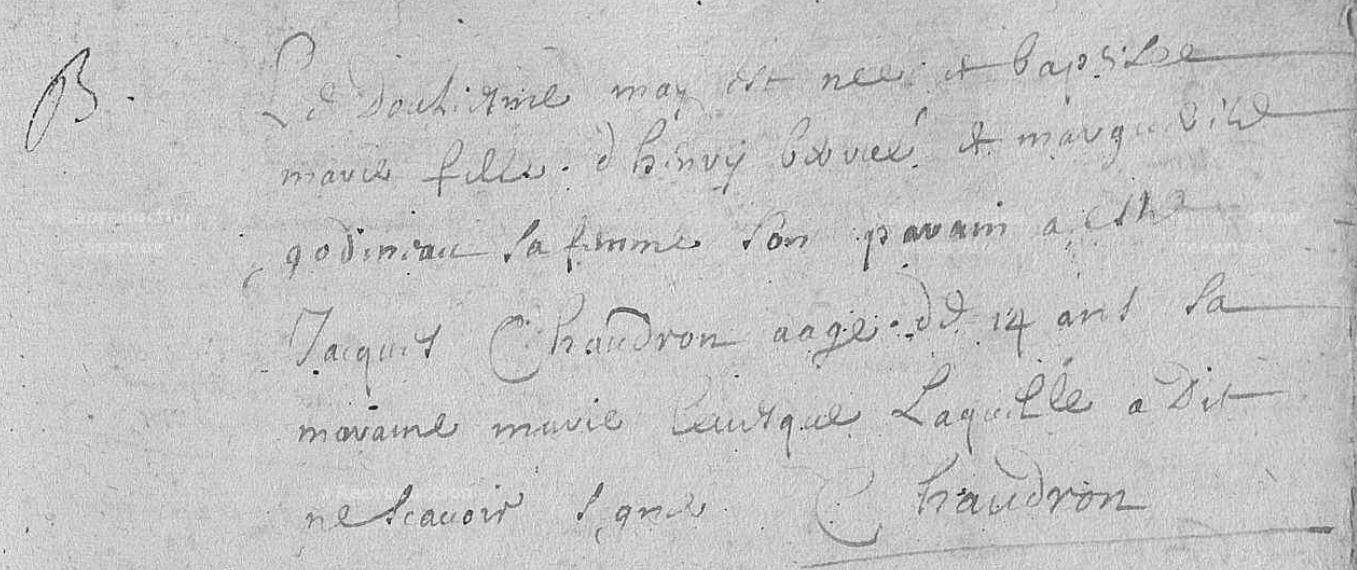 B.
Le douzieme may est nee et baptisee
marie fille d henry et marguerite
godineau sa femme son parain a esté
Jacques Chaudron aage de 14 ans sa
maraine marie Laquelle a Dit
ne scavoir signer Chaudron